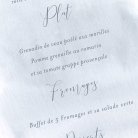 Plat
Grenadin de veau poêlé aux morilles
Pomme grenaille au romarin
et sa tomate grappe provençale
Fromages
Buffet de 5 Fromages et sa salade verte